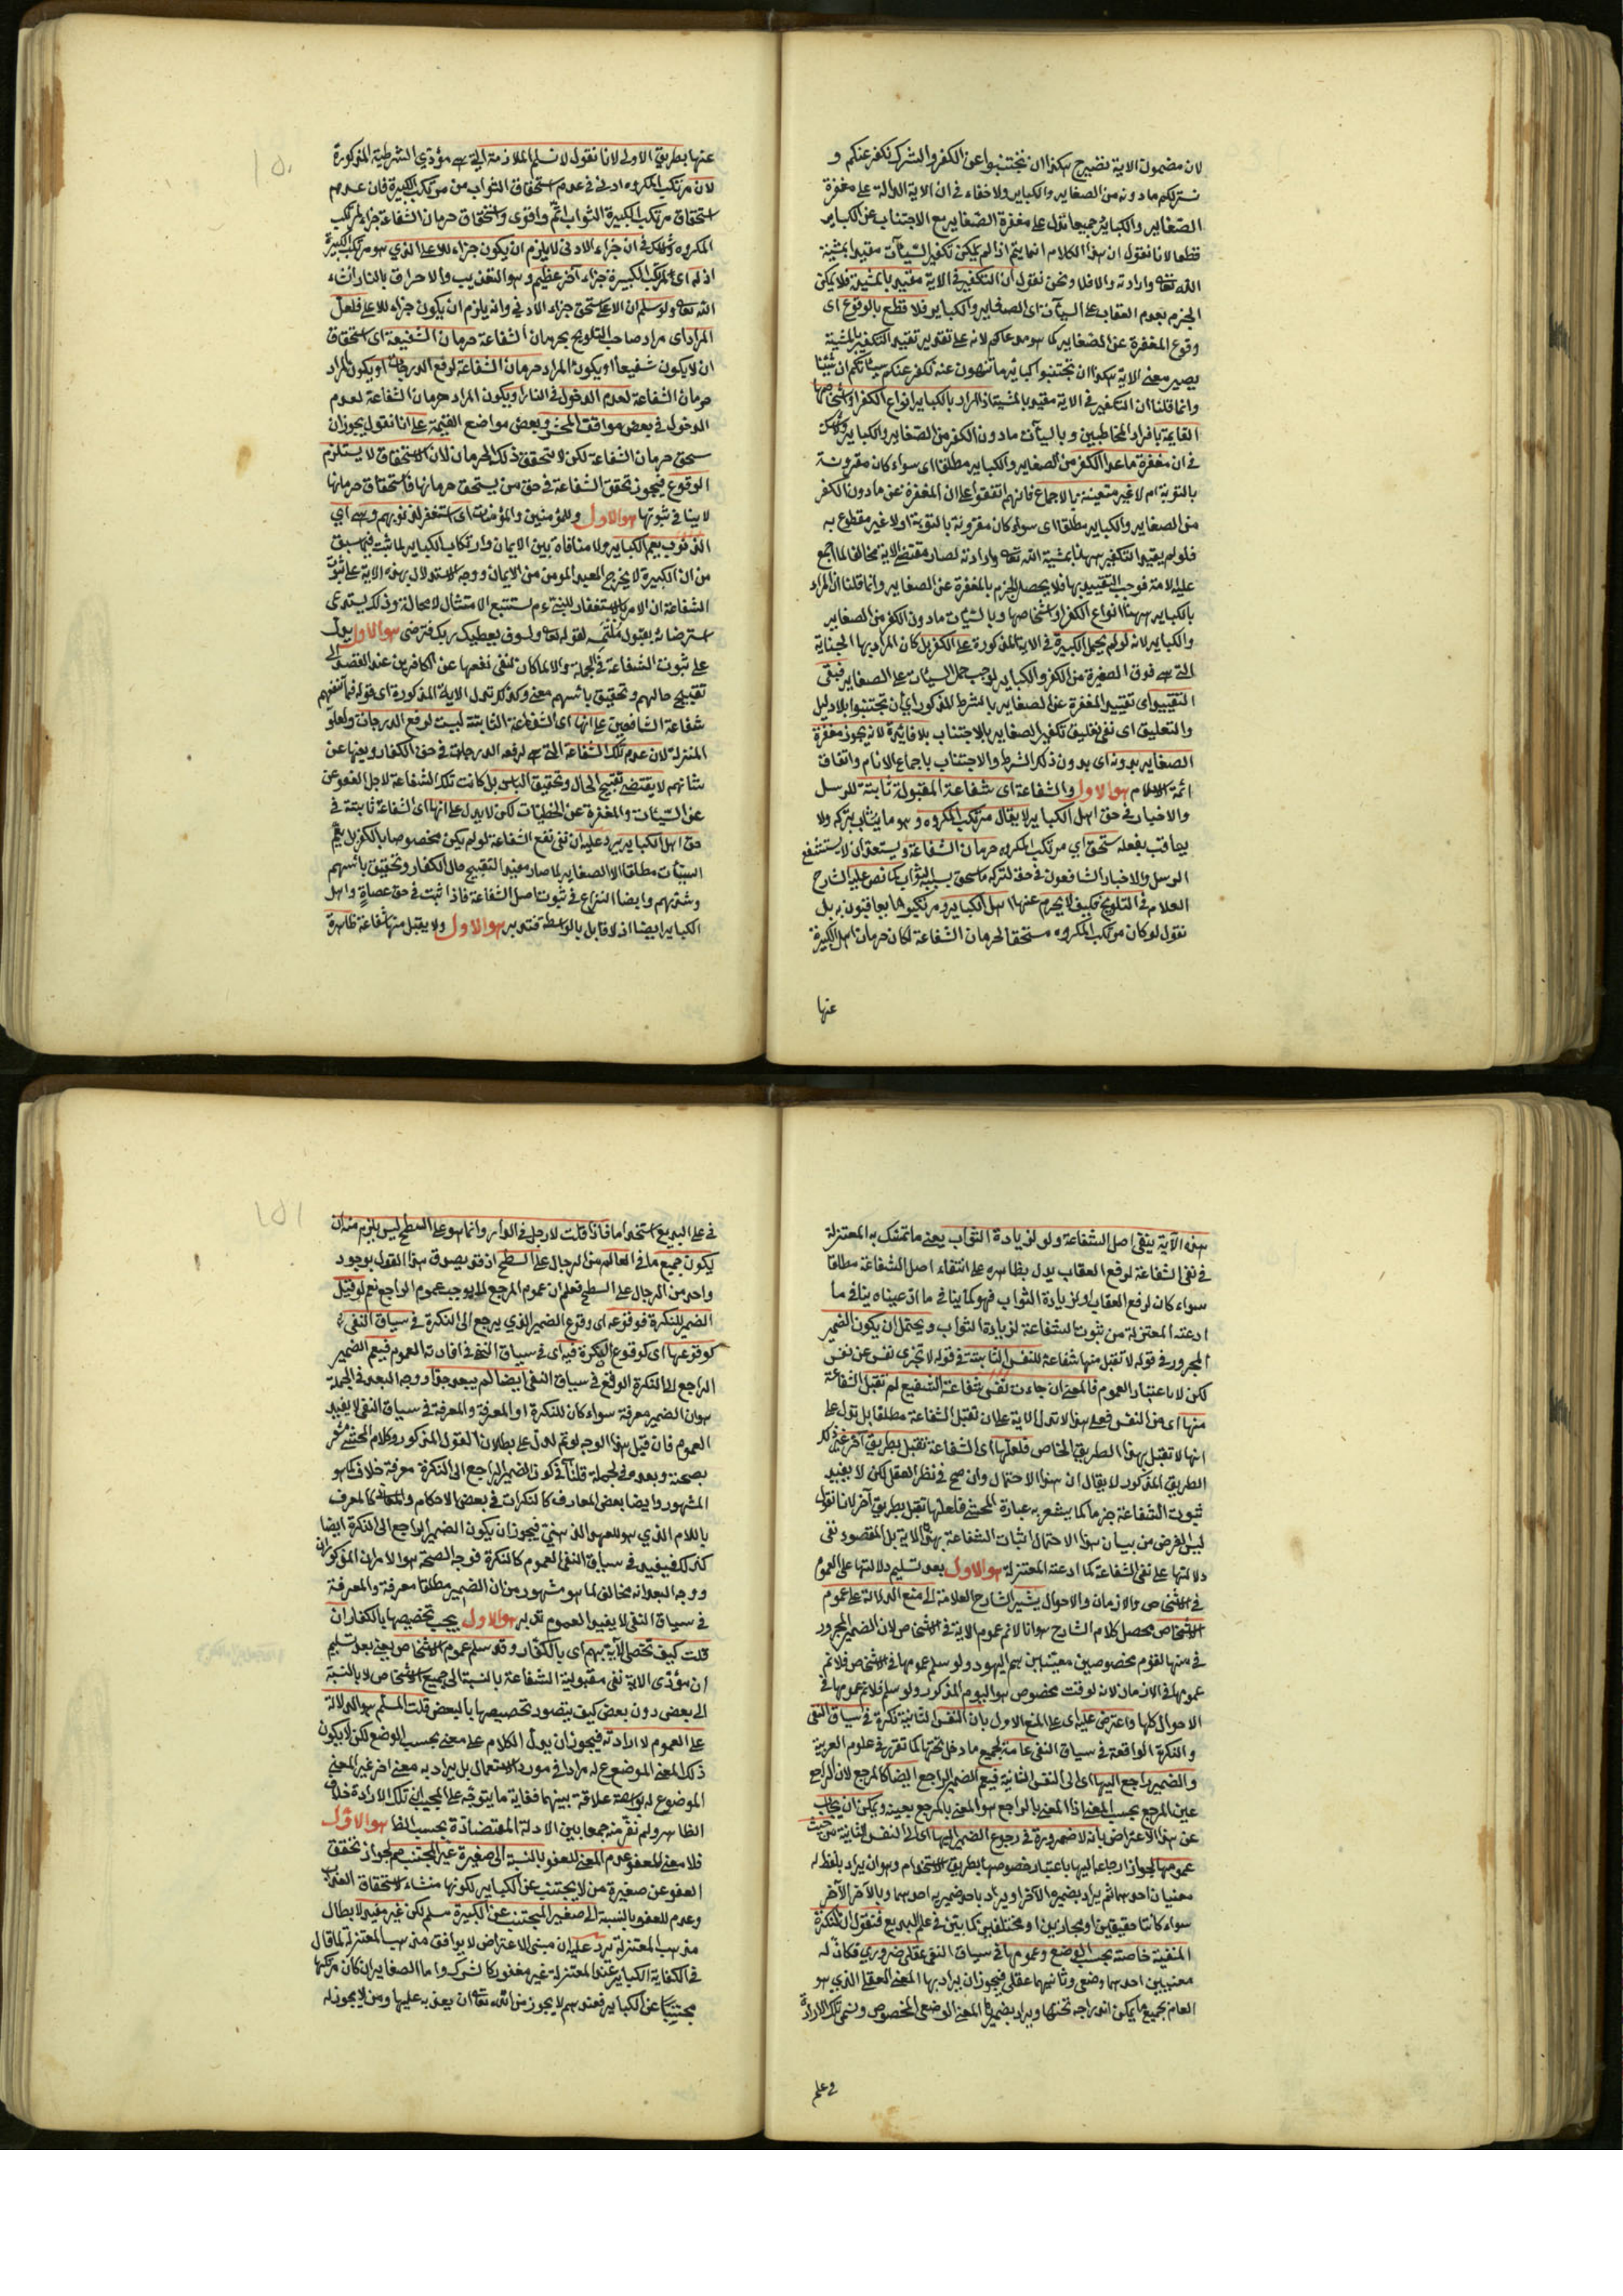 لان مضمون الآية تصير ح هكذا ان تجتنبوا عن الكفر والشرك نكفر عنكم و
نستر لكم ما دونه من الصغاير والكباير ولا خفاء فى ان الاية الدالة على مغفرة
الصغاير والكباير جميعا تدل على مغفرة الصغاير مع الاجتناب عن الكباير
قطعا لانا نقول ان هذا الكلام انما يتم اذا لم يكن تكفير السيئات مقيدا بمشية
الله تعالى وارادته والا فلا ونحن نقول ان التكفير فى الاية مقيد بالمشية فلا يمكن
الجزم بعدم العقاب على السيئات اى الصغاير والكباير فلا قطع بالوقوع اى
وقوع المغفرة عن الصغاير كما هو مدعاكم لانه على تقدير تقييد التكفير بالمشية
يصير معنى الاية هكذا ان تجتنبوا كبائر ما تنهون عنه نكفر عنكم سيئاتكم ان شئنا
وانما قلنا ان التكفير فى الاية مقيد بالمشية اذ المراد بالكباير انواع الكفر او اشخاصها
القايمة بافراد المخاطبين وبالسيئات ما دون الكفر من الصغاير والكباير ولا شك
فى ان مغفرة ما عدا الكفر من الصغاير والكباير مطلقا اى سواء كان مقرونة
بالتوبة ام لا غير متعينة بالاجماع فانهم اتفقوا على ان المغفرة عن ما دون الكفر
من الصغاير والكباير مطلقا اى سواء كان مقرونة بالتوبة او لا غير مقطوع به
فلو لم يقيد التكفير ههنا بمشية الله تعالى وارادته لصار مقتضى الاية مخالفا لما اجمع
عليه الامة فوجب التقييد بها فلا يحصل الجزم بالمغفرة عن الصغاير وانما قلنا ان المراد
بالكباير ههنا انواع الكفر او اشخاصها وبالسيئات ما دون الكفر من الصغاير
والكباير لانه لو لم يحمل الكبيرة فى الاية المذكورة على الكفر بل كان المراد بها الجناية
التى هى فوق الصغيرة من الكفر والكباير لوجب حمل السيئات على الصغاير فبقى
التقييد اى تقييد المغفرة عن الصغاير بالشرط المذكور اى ان تجتنبوا بلا دليل
والتعليق اى نفى تعليق تكفير الصغاير بالاجتناب بلا فائدة لانه يجوز مغفرة
الصغاير بدونه اى بدون ذلك الشرط والاجتناب باجماع الانام واتفاق
ائمة الاسلام هو الاول والشفاعة اى شفاعة المقبولة ثابتة للرسل
والاخيار فى حق اهل الكباير لا يقال مرتكب المكروه وهو ما يثاب بتركه ولا
يعاقب بفعله يستحق اى مرتكب المكروه حرمان الشفاعة ويستعد ان لا يستشفع
الرسل والاخيار الشافعون فى حقه لتركه ما يستحق بسببه الثواب كما نص عليه الشارح
العلام فى التلويح فكيف لا يحرم عنها اهل الكباير ومرتكبوا ما يعاقبون به بل
نقول لو كان مرتكب المكروه مستحقا لحرمان الشفاعة لكان حرمان اهل الكبيرة
عنها
عنها بطريق الاولى لانا نقول لا نسلم الملازمة التى هى مؤدى الشرطية المذكورة
لان مرتكب المكروه ادنى فى عدم استحقاق الثواب من مرتكب الكبيرة فان عدم
استحقاق مرتكب الكبيرة الثواب اتم واقوى واستحقاق حرمان الشفاعة جزاء لمرتكب
المكروه ولا شك فى ان جزاء الادنى لا يلزم ان يكون جزاء للاعلى الذى هو مرتكب الكبيرة
اذ له اى لمرتكب الكبيرة جزاء اخر عظيم وهو التعذيب والاحراق بالنار ان شاء
الله تعالى ولو سلم ان الاعلى يستحق جزاء الادنى وانه يلزم ان يكون جزاء للاعلى فلعل
المراد اى مراد صاحب التلويح بحرمان الشفاعة حرمان الشفيعة اى استحقاق
ان لا يكون شفيعا او يكون المراد حرمان الشفاعة لرفع الدرجات او يكون المراد
حرمان الشفاعة لعدم الدخول فى النار او يكون المراد حرمان الشفاعة لعدم
الدخول فى بعض مواقف المحشر وبعض مواضع القيمة على انا نقول يجوز ان
يستحق حرمان الشفاعة لكن لا يتحقق ذلك الحرمان لان الاستحقاق لا يستلزم
الوقوع فيجوز تحقق الشفاعة فى حق من يستحق حرمانها فاستحقاق حرمانها
لا ينافى ثبوتها هو الاول وللمؤمنين والمؤمنات اى استغفر لذنوبهم وهى اى
الذنوب يعم الكباير ولا منافاة بين الايمان وارتكاب الكباير لما ثبت فيما سبق
من ان الكبيرة لا يخرج العبد المومن من الايمان ووجه الاستدلال بهذه الاية على ثبوت
الشفاعة ان الامر بالاستغفار للنبى عم يستتبع الامتثال لا محالة وذلك يستدعى
استرضائه بقبول ملتمسه لقوله تعالى ولسوف يعطيك ربك فترضى هو الاول يدل
على ثبوت الشفاعة فى الجملة والا لما كان لنفى نفعها عن الكافرين عند القصد الى
تقبيح حالهم وتحقيق باسهم معنى وكذلك تدل الاية المذكورة اى قوله فما تنفعهم
شفاعة الشافعين على انها اى الشفاعة الثابتة ليست لرفع الدرجات ولعلو
المنزلة لان عدم تلك الشفاعة التى هى لرفعه الدرجات فى حق الكفار ونفيها عن
شانهم لا يقتضى تقبيح الحال وتحقيق الباس بل كانت تلك الشفاعة لاجل العفو عن
عن السيئات والمغفرة عن الخطيات لكن لا يدل على انها اى الشفاعة ثابتة فى
حق اهل الكباير يرد عليه ان نفى نفع الشفاعة لو لم يكن مخصوصا بالكفر بل يعم
السيئات مطلقا الا الصغاير لما صار مفيدا لتقبيح حال الكفار وتحقيق باسهم
وشدتهم وايضا النزاع فى ثبوت اصل الشفاعة فاذا ثبت فى حق عصاة واهل
الكباير ايضا اذ لا قايل بالواسطة فتدبر هو الاول ولا يقبل منها شفاعة ظاهرة
هذه الآية ينفى اصل الشفاعة ولو لزيادة الثواب يعنى ما تمسك به المعتزلة
فى نفى الشفاعة لرفع العقاب يدل بظاهره على انتفاء اصل الشفاعة مطلقا
سواء كان لرفع العقاب او لزيادة الثواب فهو كما ينافى ما ادعيناه ينافى ما
ادعته المعتزلة من ثبوت الشفاعة لزيادة الثواب ويحتمل ان يكون الضمير
المجرور فى قوله لا تقبل منها شفاعة للنفس الثانية فى قوله لا تجزى نفس عن نفس
لكن لا باعتبار العموم فالمعنى ان جاءت نفس شفاعة الشفيع لم تقبل الشفاعة
منها اى من النفس فعلى هذا لا تدل الاية على ان تقبل الشفاعة مطلقا بل تدل على
انها لا تقبل بهذا الطريق الخاص فلعلها اى الشفاعة تقبل بطريق اخر غير ذلك
الطريق المذكور لا يقال ان هذا الاحتمال وان صح فى نظر العقل لكن لا يفيد
ثبوت الشفاعة جزما كما يشعر به عبارة المحشى فلعلها تقبل بطريق آخر لانا نقول
ليس الغرض من بيان هذا الاحتمال اثبات الشفاعة بهذه الاية بل المقصود نفى
دلالتها على نفى الشفاعة كما ادعته المعتزلة هو الاول بعد تسليم دلالتها على العموم
فى الاشخاص والازمان والاحوال يشير الشارح العلامة الى منع الدلالة على عموم
الاشخاص محصل كلام الشارح هو انا لا نم عموم الاية فى الاشخاص لان الضمير المجرور
فى منها لقوم مخصوصين معينين هم اليهود ولو سلم عمومها فى الاشخاص فلا نم
عمومها فى الازمان لانه لوقت مخصوص هو اليوم المذكور ولو سلم فلا نم عمومها فى
الاحوال كلها واعترض عليه اى على المنع الاول بان النفس الثانية نكرة فى سياق النفى
والنكرة الواقعة فى سياق النفى عامة لجميع ما دخل تحتها كما تقرر فى علوم العربية
والضمير راجع اليها اى الى النفس الثانية فيعم الضمير الراجع ايضا كالمرجع لان الراجع
عين المرجع بحسب المعنى اذا المعنى بالراجع هو المعنى بالمرجع بعينه ويمكن ان يجاب
عن هذا الاعتراض بانه لا ضرورة فى رجوع الضمير اليها اى الى النفس الثانية من حيث
عمومها لجواز ارجاعه اليها باعتبار خصوصها بطريق الاستخدام وهو ان يراد بلفظ له
معنيان احدهما ثم يراد بضميره الآخر او يراد باحد ضميريه احدهما وبالآخر الآخر
سواء كانتا حقيقيتين او مجازيين او مختلفين كما بين فى علم البديع فنقول ان النكرة
المنفية خاصة بحسب الوضع وعمومها فى سياق النفى عقلى ضرورى فكان له
معنيين احدهما وضعى وثانيهما عقلى فيجوز ان يراد بها المعنى العقلى الذى هو
العام بجميع ما يمكن اندراجه تحتها ويراد بضميرها المعنى الوضعى المخصوص وسمى تلك الارادة
فى علم
فى علم البديع استخداما فاذا قلت لا رجل فى الدار وانما هو على السطح ليس يلزم منه ان
يكون جميع ما فى العالم من الرجال على السطح اذ قد يصدق هذا القول بوجود
واحد من الرجال على السطح فعلم ان عموم المرجع لا يوجب عموم الراجع نعم لو قيل
الضمير للنكرة فوقوعه اى وقوع الضمير الذى يرجع الى النكرة فى سياق النفى
كوقوعها اى كوقوع النكرة فيه اى فى سياق النفى فى افادته العموم فيعم الضمير
الراجع الى النكرة الواقع فى سياق النفى ايضا لم يبعد جدا ووجه البعد فى الجملة
هو ان الضمير معرفة سواء كان للنكرة او المعرفة والمعرفة فى سياق النفى لا يفيد
العموم فان قيل هذا الوجه لو تم لدل على بطلان القول المذكور وكلام المحشى مشعر
بصحته وبعده فى الجملة قلنا فى كون الضمير الراجع الى النكرة معرفة خلاف كما هو
المشهور وايضا بعض المعارف كالنكرات فى بعض الاحكام والمعانى كالمعرف
باللام الذى هو للعهد الذهنى فيجوز ان يكون الضمير الراجع الى النكرة ايضا
كذلك فيفيد فى سياق النفى العموم كالنكرة فوجه الصحة هو الامران المذكوران
ووجه البعد انه مخالف لما هو مشهور من ان الضمير مطلقا معرفة والمعرفة
فى سياق النفى لا يفيد العموم تدبر هو الاول يجب تخصيصها بالكفار ان
قلت كيف تخص الآية بهم اى بالكفار وقد سلم عموم الاشخاص يعنى بعد تسليم
ان مؤدى الاية نفى مقبولية الشفاعة بالنسبة الى جميع الاشخاص لا بالنسبة
الى بعض دون بعض كيف يتصور تخصيصها بالبعض قلت المسلم هو الدلالة
على العموم لا ارادته فيجوز ان يدل الكلام على معنى بحسب الوضع لكن لا يكون
ذلك المعنى الموضوع له مرادا فى مورد الاستعمال بل يراد به معنى اخر غير المعنى
الموضوع له بواسطة علاقة بينهما فغاية ما يتوجه على المجيب ان تلك الارادة خلاف
الظاهر ولم نفر منه جمعا بين الادلة المتضادة بحسب الظا هو الاول
فلا معنى للعفو عدم المعنى للعفو بالنسبة الى صغيرة غير المجتنب مم لجواز تحقق
العفو عن صغيرة من لا يجتنب عن الكباير لكونها منشاء لاستحقاق العذاب
وعدم للعفو بالنسبة الى صغير المجتنب عن الكبيرة مسلم لكن غير مفيد لابطال
مذهب المعتزلة يرد عليه ان مبنى الاعتراض لا يوافق مذهب المعتزلة لما قال
فى الكفاية الكباير عند المعتزلة غير مغفور كالشرك واما الصغاير ان كان مرتكبها
مجتنبا عن الكباير فعندهم لا يجوز من الله تعالى ان يعذبه عليها ومن لا يجوز له